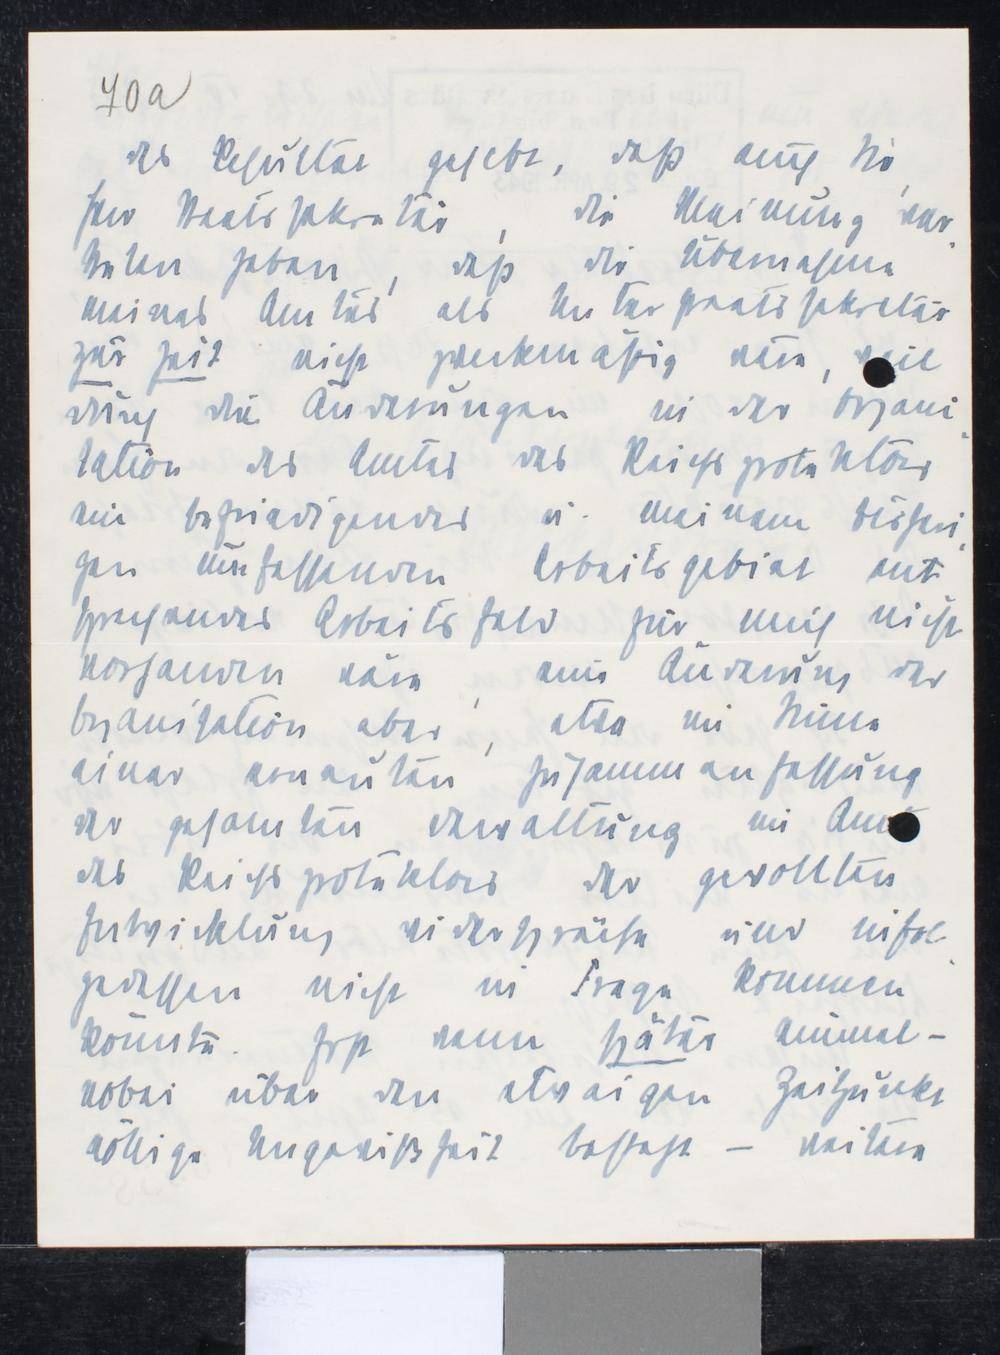 70a
das Resultat gehabt, daß auch Sie,
Herr Staatssekretär, die Meinung ver
treten haben, daß die Übernahme
meines Amtes als Unterstaatssekretär
zur Zeit nicht zweckmäßig wäre, weil
durch die Änderungen in der Organi
sation des Amtes des Reichsprotektors
ein befriedigendes u. meinem bisheri
gen umfassenden Arbeitsgebiet ent
sprechendes Arbeitsfeld für mich nicht
vorhanden wäre, eine Änderung der
Organisation aber, etwa im Sinne
einer erneuten Zusammenfassung
der gesamten Verwaltung im Amt
des Reichsprotektors der gewollten
Entwicklung widerspräche und infol
gedessen nicht in Frage kommen
könnte. Erst wenn später einmal -
wobei über den etwaigen Zeitpunkt
völlige Ungewißheit besteht - weitere